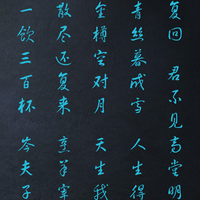 复回 君不见高堂明
青丝暮成雪 人生得
金樽空对月 天生我
散尽还复来 烹羊宰
一饮三百杯 岑夫子